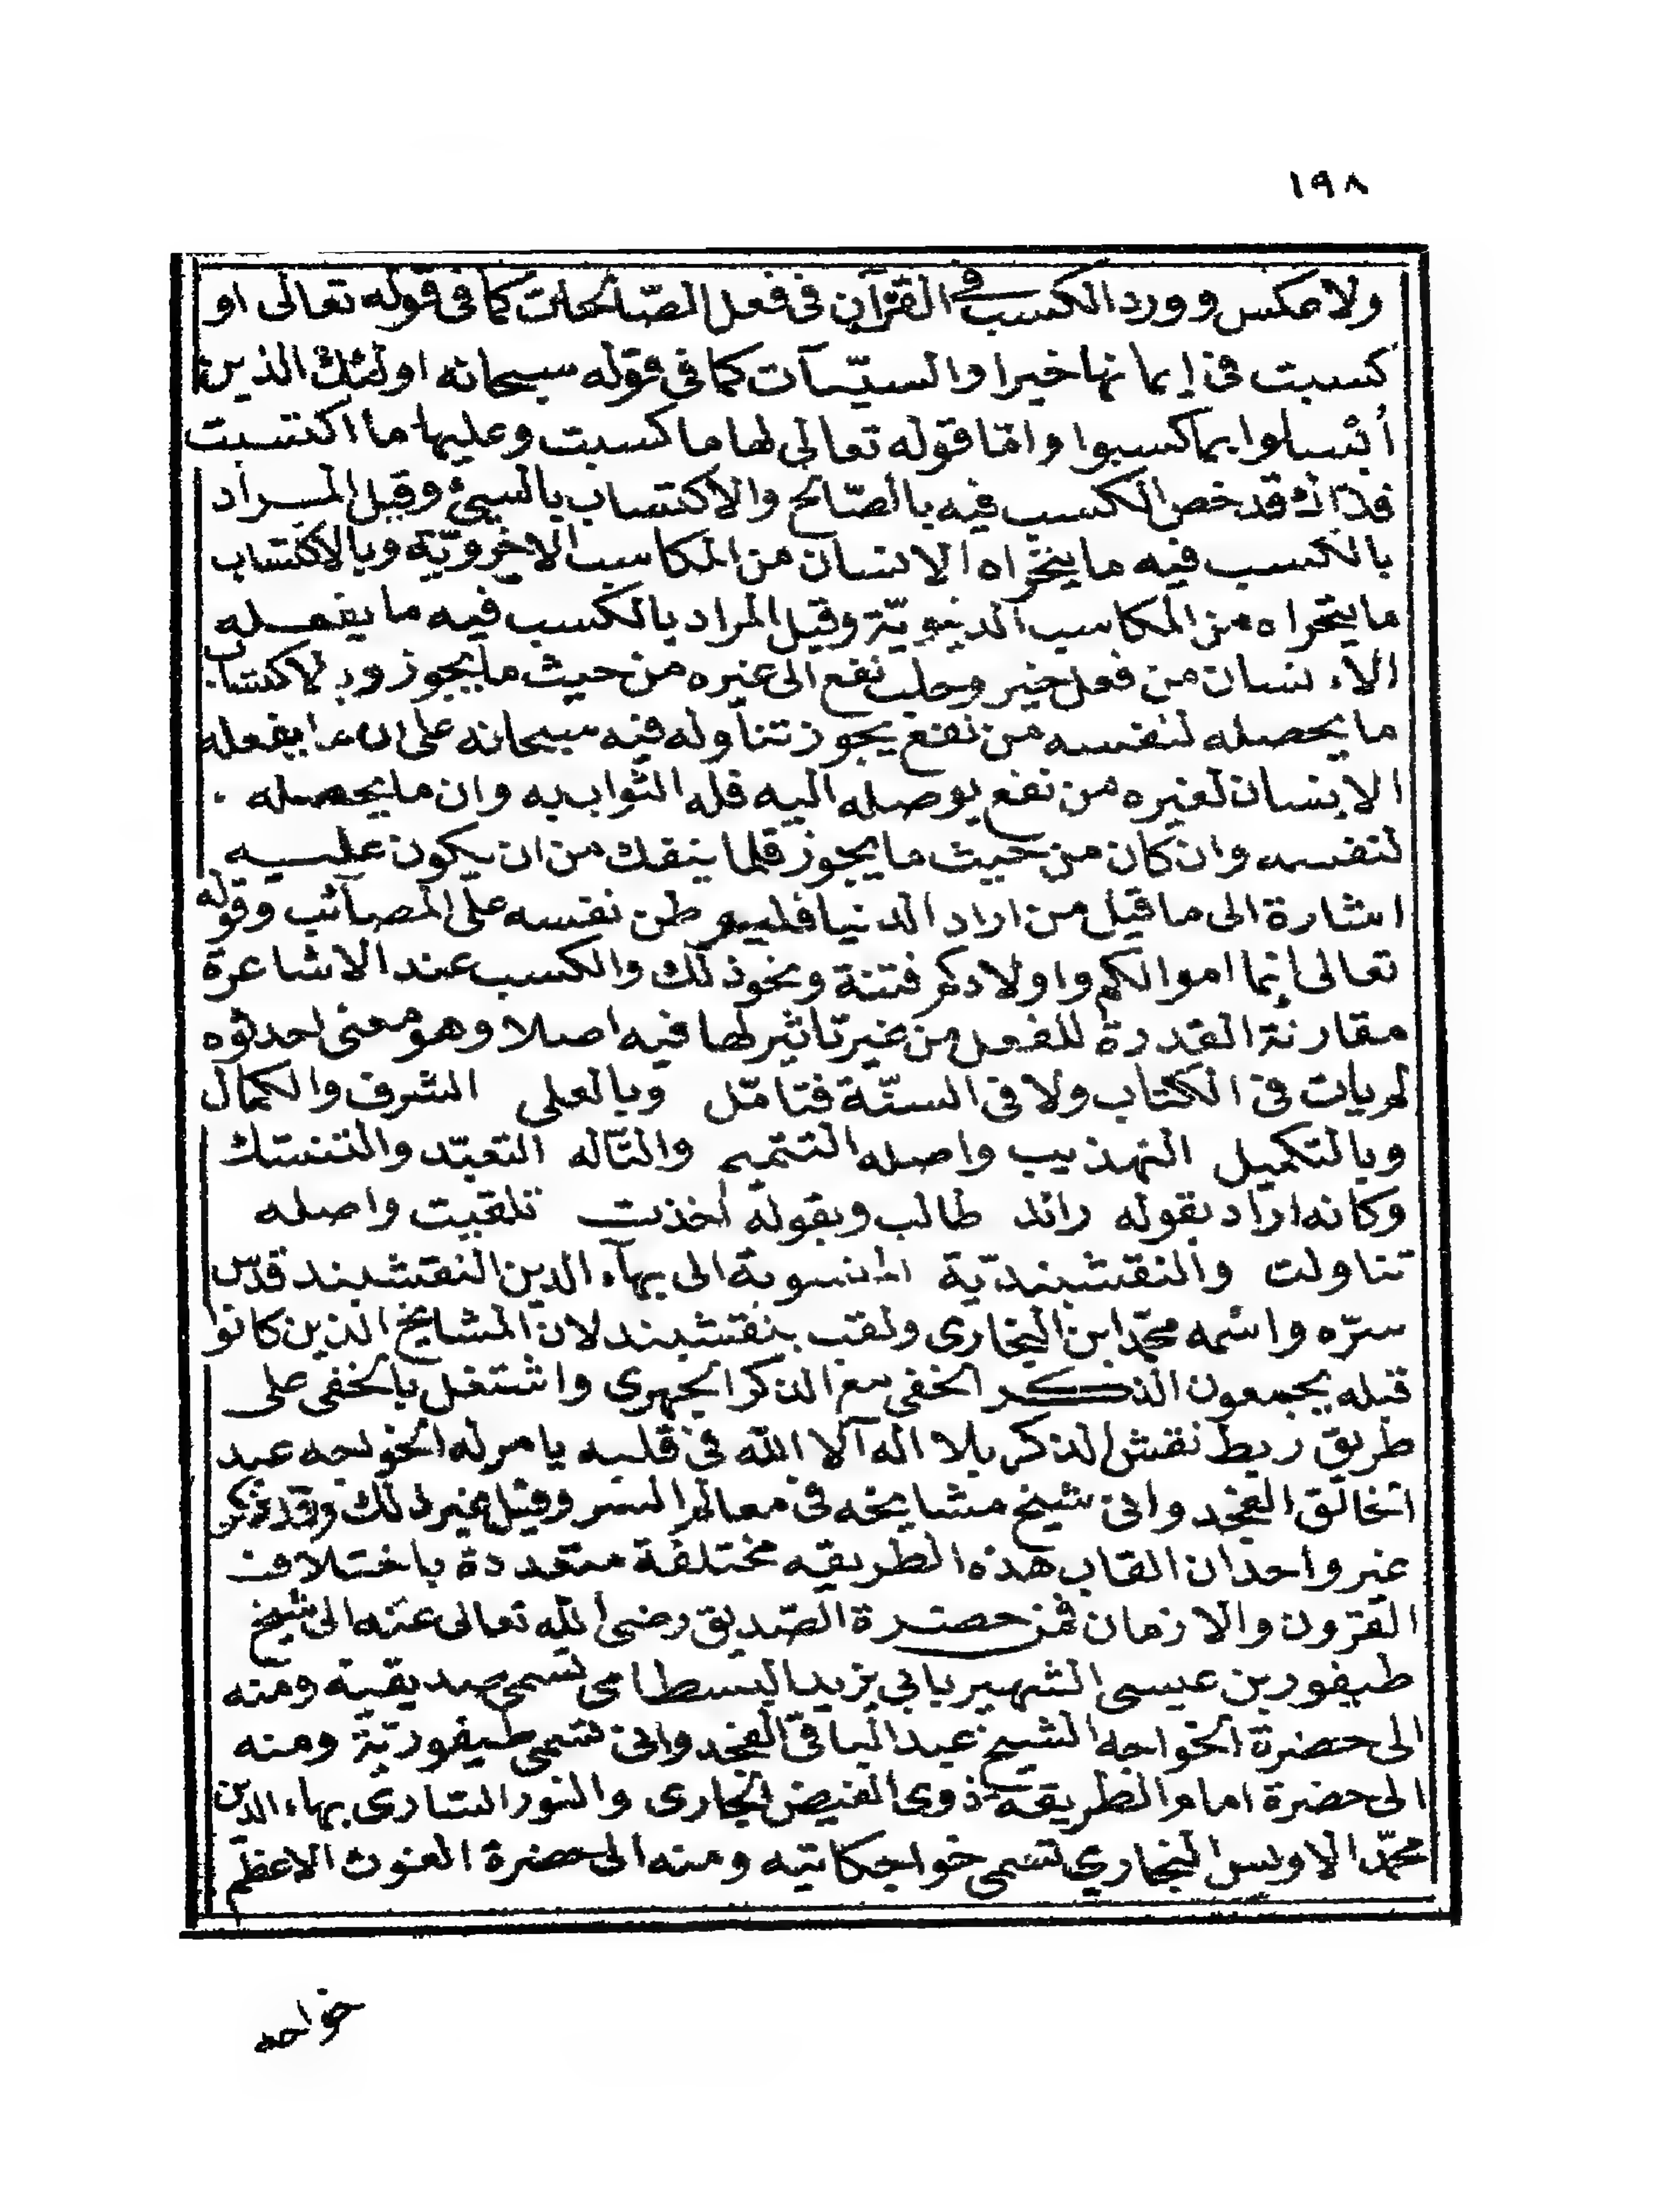 ١٩٨
ولا عكس وورد الكسب في القرآن في فعل الصّالحات كما في قوله تعالى او
كسبت في إيمانها خيرا والسيّآت كما في قوله سبحانه اولئك الذين
أبسلوا بما كسبوا وامّا قوله تعالى لها ما كسبت وعليها ما اكتسبت
فذاك قد خص الكسب فيه بالصّالح والاكتساب بالسيئ وقيل المراد
بالكسب فيه ما يتحراه الانسان من المكاسب الاخرويّة وبالاكتساب
ما يتحراه من المكاسب الدنيويّة وقيل المراد بالكسب فيه ما يفعله
الاءنسان من فعل خير وجلب نفع الى غيره من حيث ما يجوز وبالاكتساب
ما يحصله لنفسه من نفع يجوز تناوله فنبه سبحانه على ان ما يفعله
الانسان لغيره من نفع يوصله اليه فله الثواب به وان ما يحصله
لنفسه وان كان من حيث ما يجوز قلما ينفك من ان يكون عليه
اشارة الى ما قيل من اراد الدنيا فليوطن نفسه على المصائب وقوله
تعالى إنما اموالكم واولادكم فتنة ونحو ذلك والكسب عند الاشاعرة
مقارنة القدرة للفعل من غير تاثير لها فيه اصلا وهو معنى احدثوه
لم يات في الكتاب ولا في السنّة فتامّل وبالعلى الشرف والكمال
وبالتكميل التهذيب واصله التتميم والتّاله التعبّد والتنسّك
وكانه اراد بقوله رائد طالب وبقوله أخذت تلقيت واصله
تناولت والنقشبنديّة المنسوبة الى بهآء الدين النقشبند قدّس
سرّه واسمه محمّد ابن البخارى ولقب بنقشبند لان المشايخ الذين كانوا
قبله يجمعون الذكر الخفى مع الذكر الجهرى واشتغل بالخفى على
طريق ربط نقش الذكر بلا اله الا الله في قلبه يامر له الخواجه عبد
الخالق الغجدوانى شيخ مشايخه في معالم السر وقيل غير ذلك وقد ذكر
غير واحد ان القاب هذه الطريقه مختلفة متعددة باختلاف
القرون والازمان فمن حضرة الصّديق رضى الله تعالى عنه الى شيخ
طيفور بن عيسى الشهير بابي يزيد البسطامى تسمى صديقية ومنه
الى حضرة الخواجه الشيخ عبد الباقى الغجدوانى تسمى طيفوريّة ومنه
الى حضرة امام الطريقة ذوى الفيض الجارى والنور السّارى بهاء الدين
محمّد الاويس البخاري تسمى خواجكانيه ومنه الى حضرة الغوث الاعظم
خواجه